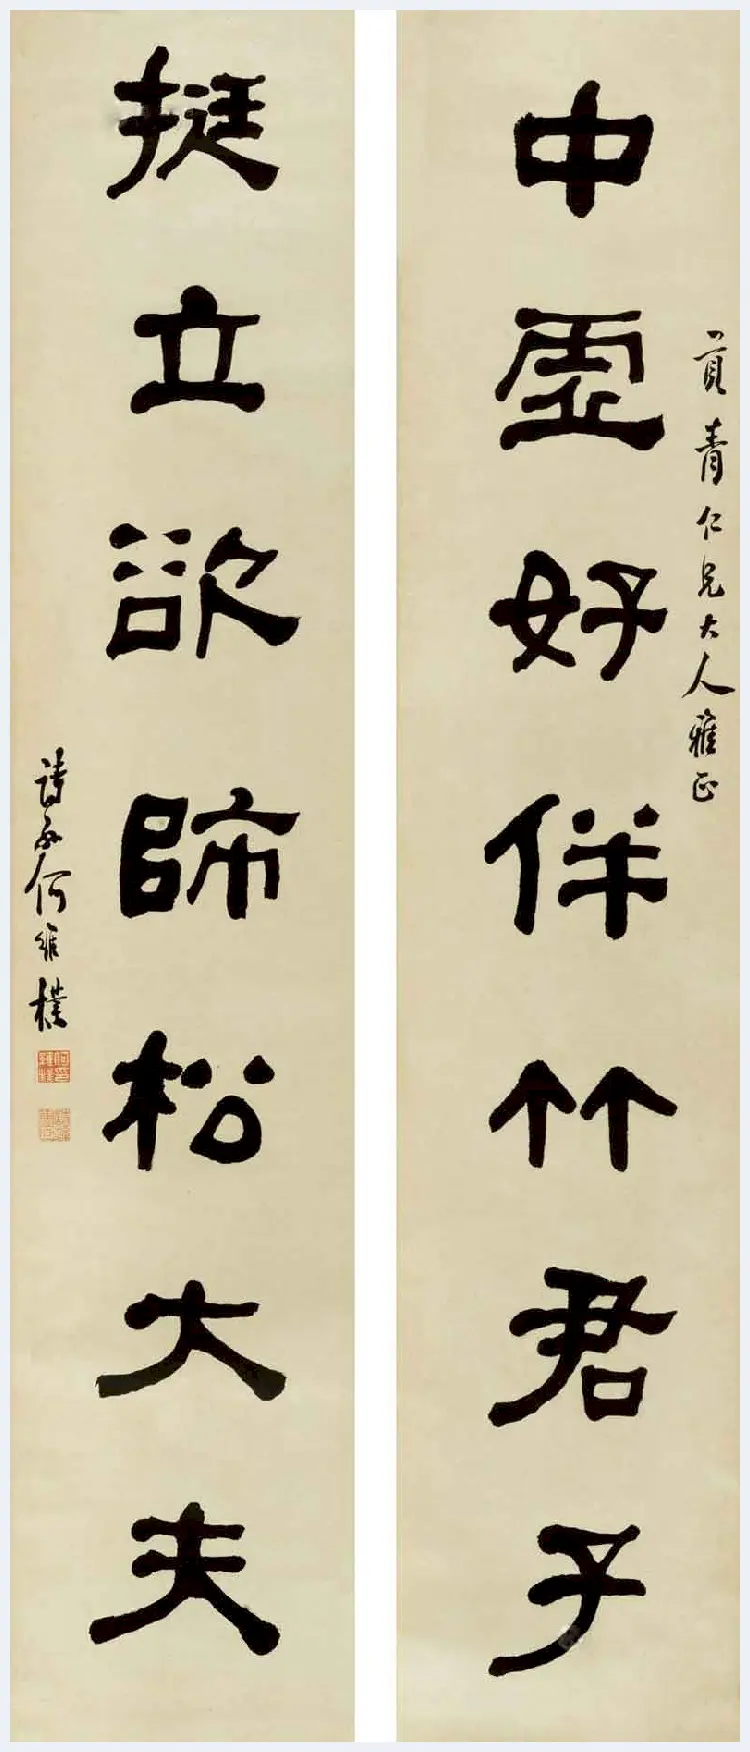 貢青仁兄大人雅正
中虛好伴竹君子
挺立欲師松大夫
詩孫何維樸